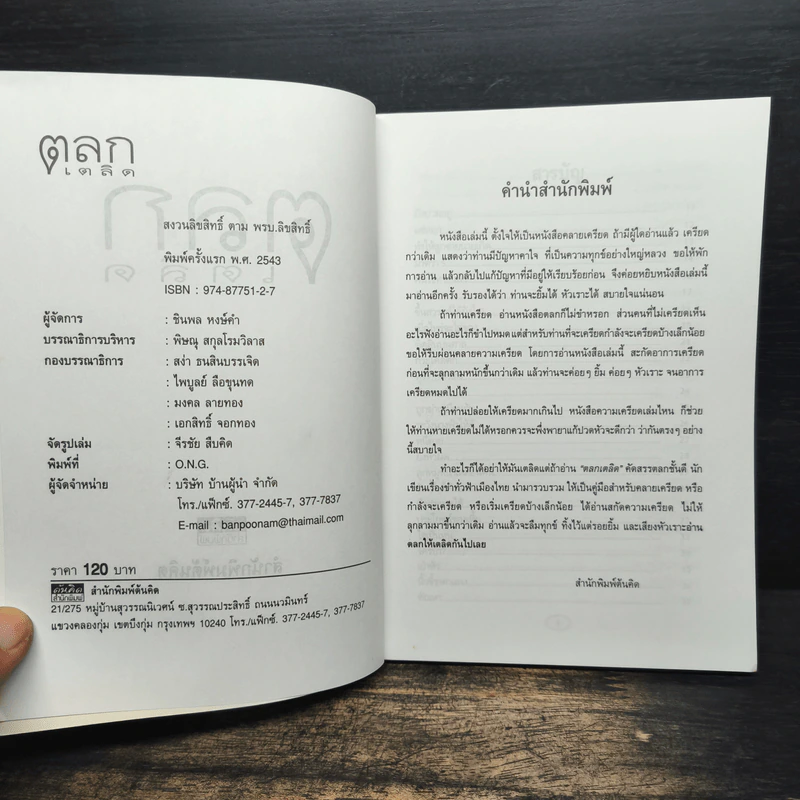 ตลก
เตลิด
สงวนลิขสิทธิ์ ตาม พรบ.ลิขสิทธิ์
พิมพ์ครั้งแรก พ.ศ. 2543
ISBN : 974-87751-2-7
ผู้จัดการ : ชินพล หงษ์คำ
บรรณาธิการบริหาร : พิษณุ สกุลโรมวิลาส
กองบรรณาธิการ : สง่า ธนสินบรรเจิด
: ไพบูลย์ ลือขุนทด
: มงคล ลายทอง
: เอกสิทธิ์ จอกทอง
จัดรูปเล่ม : จีรชัย สืบคิด
พิมพ์ที่ : O.N.G.
ผู้จัดจำหน่าย : บริษัท บ้านผู้นำ จำกัด
โทร./แฟ็กซ์. 377-2445-7, 377-7837
E-mail : banpoonam@thaimail.com
ราคา 120 บาท
ต้นคิด สำนักพิมพ์ สำนักพิมพ์ต้นคิด
21/275 หมู่บ้านสุวรรณนิเวศน์ ซ.สุวรรณประสิทธิ์ ถนนนวมินทร์
แขวงคลองกุ่ม เขตบึงกุ่ม กรุงเทพฯ 10240 โทร./แฟ็กซ์. 377-2445-7, 377-7837
คำนำสำนักพิมพ์
หนังสือเล่มนี้ ตั้งใจให้เป็นหนังสือคลายเครียด ถ้ามีผู้ใดอ่านแล้ว เครียด
กว่าเดิม แสดงว่าท่านมีปัญหาคาใจ ที่เป็นความทุกข์อย่างใหญ่หลวง ขอให้พัก
การอ่าน แล้วกลับไปแก้ปัญหาที่มีอยู่ให้เรียบร้อยก่อน จึงค่อยหยิบหนังสือเล่มนี้
มาอ่านอีกครั้ง รับรองได้ว่า ท่านจะยิ้มได้ หัวเราะได้ สบายใจแน่นอน
ถ้าท่านเครียด อ่านหนังสือตลกก็ไม่ขำหรอก ส่วนคนที่ไม่เครียดเห็น
อะไรฟังอ่านอะไรก็ขำไปหมดแต่สำหรับท่านที่จะเครียดกำลังจะเครียดบ้างเล็กน้อย
ขอให้รีบผ่อนคลายความเครียด โดยการอ่านหนังสือเล่มนี้ สะกัดอาการเครียด
ก่อนที่จะลุกลามหนักขึ้นกว่าเดิม แล้วท่านจะค่อยๆ ยิ้ม ค่อยๆ หัวเราะ จนอาการ
เครียดหมดไปได้
ถ้าท่านปล่อยให้เครียดมากเกินไป หนังสือความเครียดเล่มไหน ก็ช่วย
ให้ท่านหายเครียดไม่ได้หรอกควรจะพึ่งพายาแก้ปวดหัวจะดีกว่า ว่ากันตรงๆ อย่าง
นี้สบายใจ
ทำอะไรก็ได้อย่าให้มันเตลิดแต่ถ้าอ่าน "ตลกเตลิด" คัดสรรตลกชั้นดี นัก
เขียนเรื่องขำทั่วฟ้าเมืองไทย นำมารวบรวม ให้เป็นคู่มือสำหรับคลายเครียด หรือ
กำลังจะเครียด หรือเริ่มเครียดบ้างเล็กน้อย ได้อ่านสกัดความเครียด ไม่ให้
ลุกลามมาขึ้นกว่าเดิม อ่านแล้วจะลืมทุกข์ ทิ้งไว้แต่รอยยิ้ม และเสียงหัวเราะอ่าน
ตลกให้เตลิดกันไปเลย
สำนักพิมพ์ต้นคิด